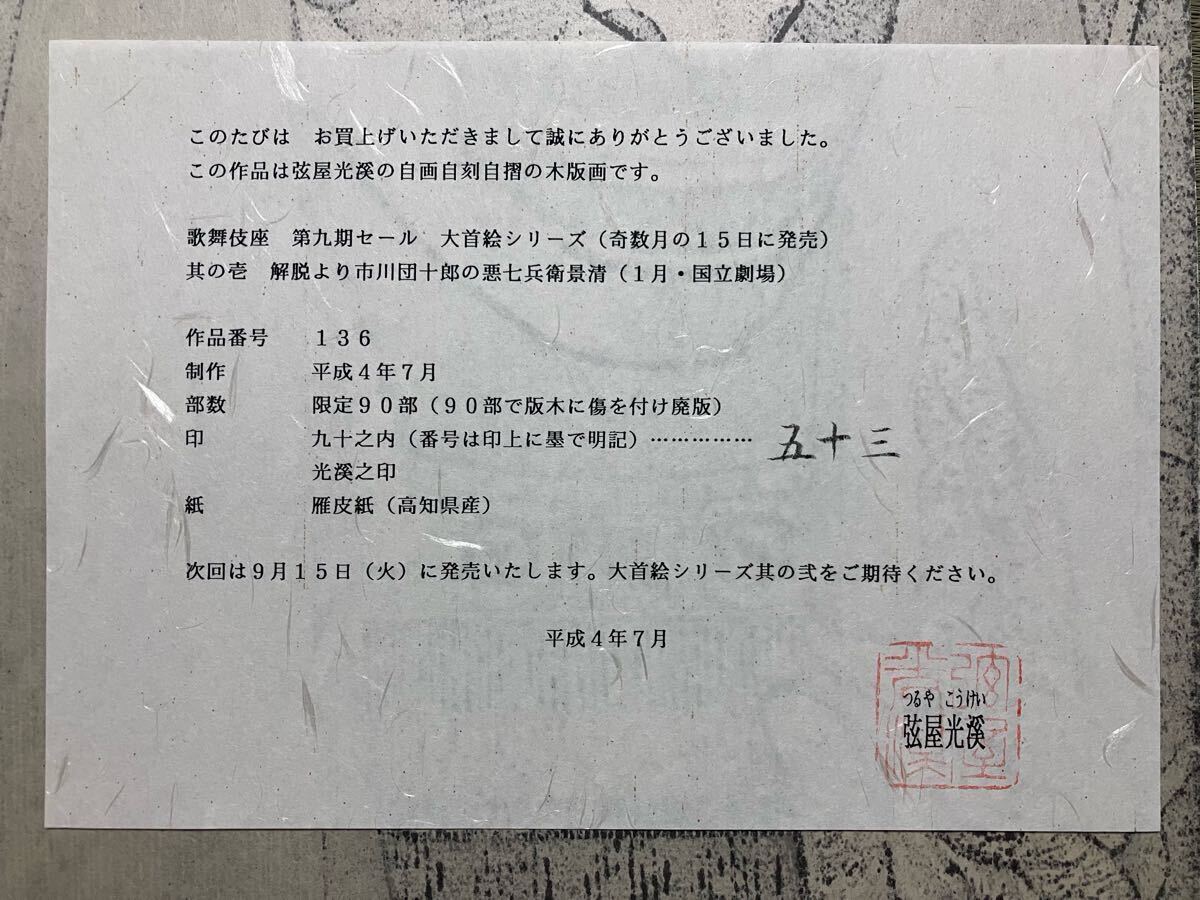 このたびは　お買上げいただきまして誠にありがとうございました。
この作品は弦屋光溪の自画自刻自摺の木版画です。
歌舞伎座　第九期セール　大首絵シリーズ（奇数月の１５日に発売）
其の壱　解脱より市川団十郎の悪七兵衛景清（１月・国立劇場）
作品番号　１３６
制作　平成４年７月
部数　限定９０部（９０部で版木に傷を付け廃版）
印　九十之内（番号は印上に墨で明記）……………　五十三
光溪之印
紙　雁皮紙（高知県産）
次回は９月１５日（火）に発売いたします。大首絵シリーズ其の弐をご期待ください。
平成４年７月
つるや　こうけい
弦屋光溪
弦屋光溪